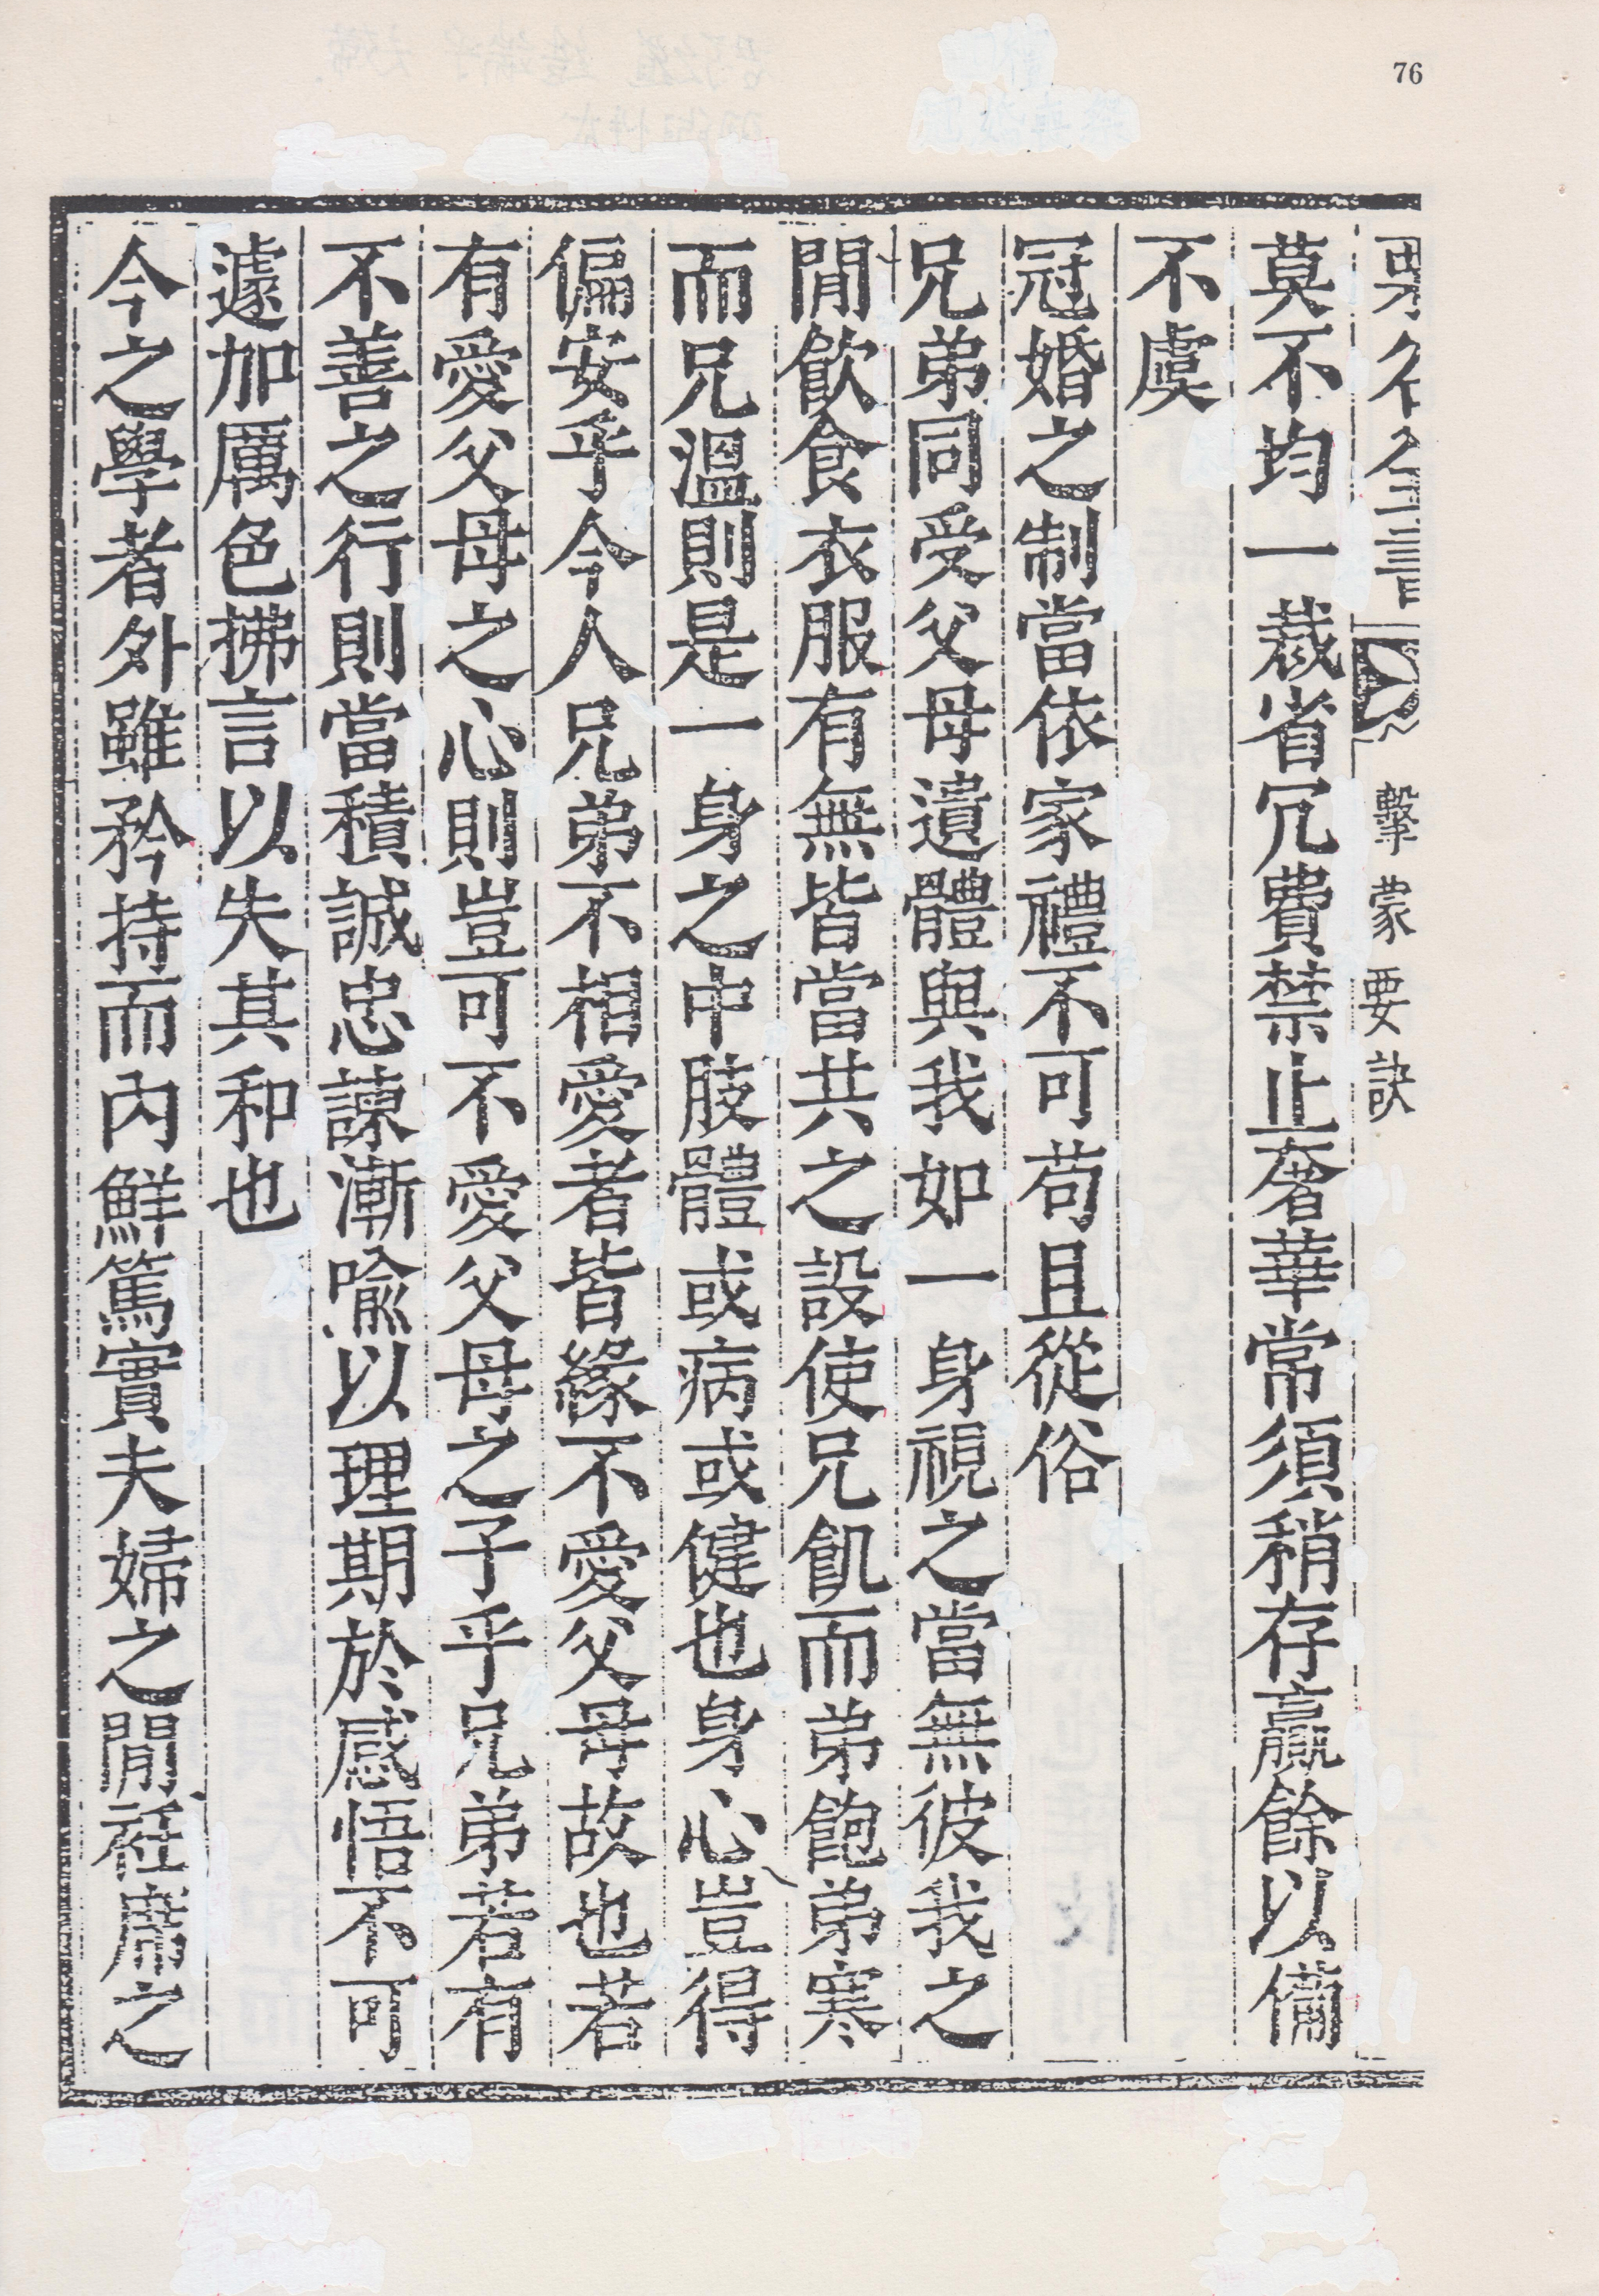 76
栗谷全書 擊蒙要訣
莫不均一裁省冗費禁止奢華常須稍存贏餘以備
不虞
冠婚之制當依家禮不可苟且從俗
兄弟同受父母遺體與我如一身視之當無彼我之
閒飮食衣服有無皆當共之設使兄飢而弟飽弟寒
而兄溫則是一身之中肢體或病或健也身心豈得
偏安乎今人兄弟不相愛者皆緣不愛父母故也若
有愛父母之心則豈可不愛父母之子乎兄弟若有
不善之行則當積誠忠諫漸喩以理期於感悟不可
遽加厲色拂言以失其和也
今之學者外雖矜持而內鮮篤實夫婦之閒衽席之